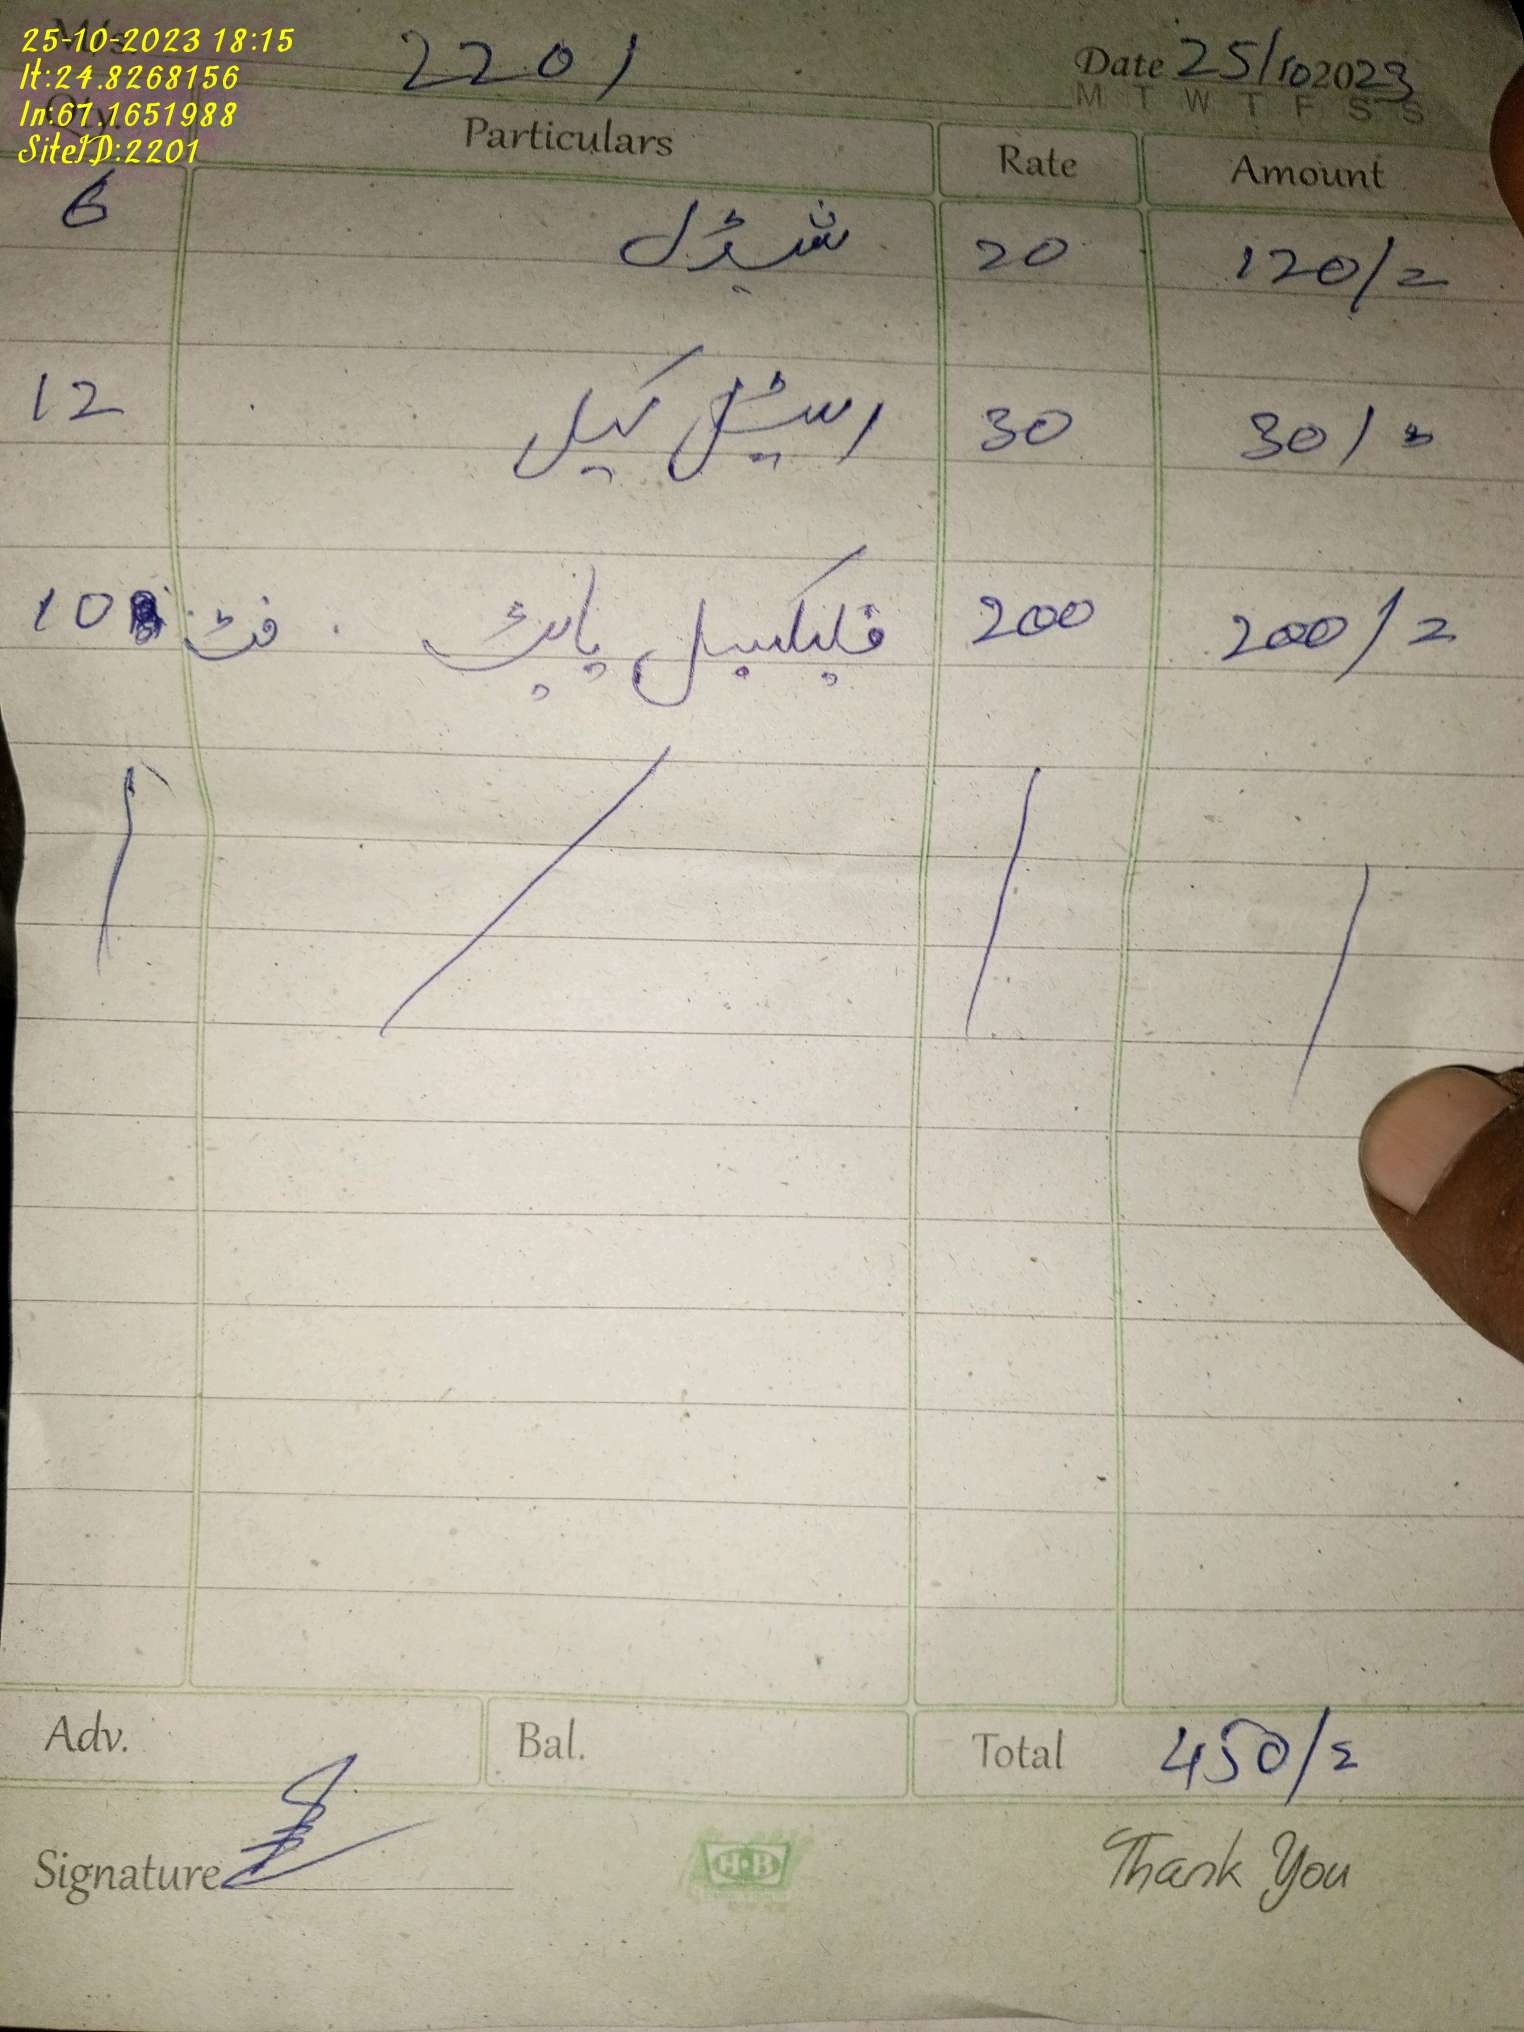 25-10-2023 18:15
lt:24.8268156
ln:67.1651988
SiteID:2201
M/s. 2201 Date 25/10 2023
M T W T F S S
Qty. Particulars Rate Amount
6 شیڈل 20 120/=
12 اسٹیل کیل 30 30/=
10 فٹ فلیکسیبل پائپ 200 200/=
Adv. Bal. Total 450/=
Signature H·B Thank You